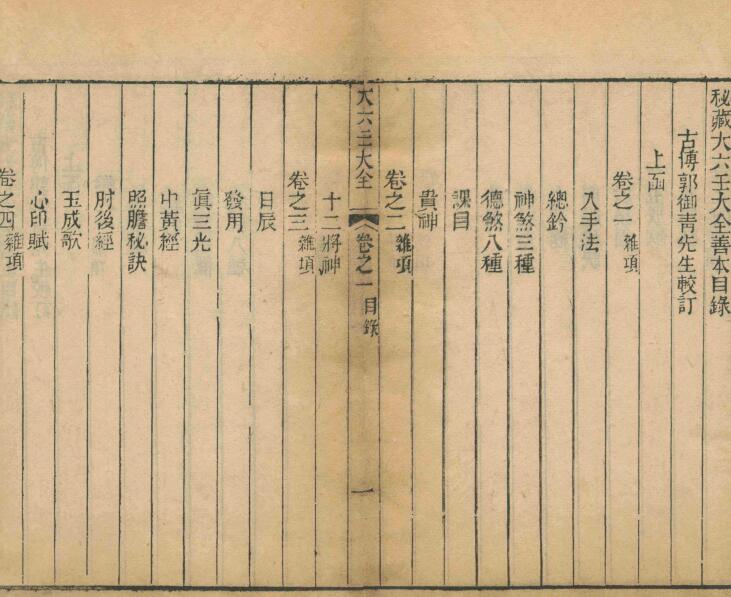 秘藏大六壬大全善本目錄
古傅郭御青先生較訂
上函
卷之一 雜項
入手法
總鈐
神煞三種
德煞八種
課目
貴神
卷之二 雜項
大六壬大全 卷之一 目錄 一
十二將神
卷之三 雜項
日辰
發用
眞三光
中黃經
照膽秘訣
肘後經
玉成歌
心印賦
卷之四 雜項